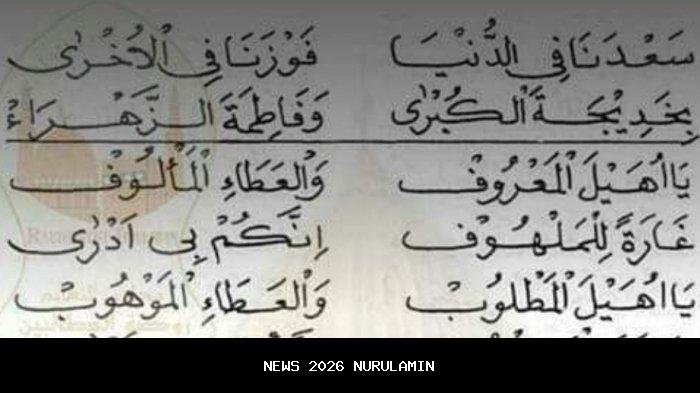 سَعْدَنَا فِي الدُّنْيَا فَوْزَنَا فِي الْاُخْرٰى
بِخَدِيْجَةَ الْكُبْرٰى وَفَاطِمَةَ الزَّهْرَاءْ
يَا اُهَيْلَ الْمَعْرُوْفْ وَالْعَطَاءِ الْمَأْلُوْفْ
غَارَةً لِلْمَلْهُوْفْ اِنَّكُمْ بِي اَدْرٰى
يَا اُهَيْلَ الْمَطْلُوْبْ وَالْعَطَاءِ الْمَوْهُوْبْ
NEWS 2026 NURULAMIN